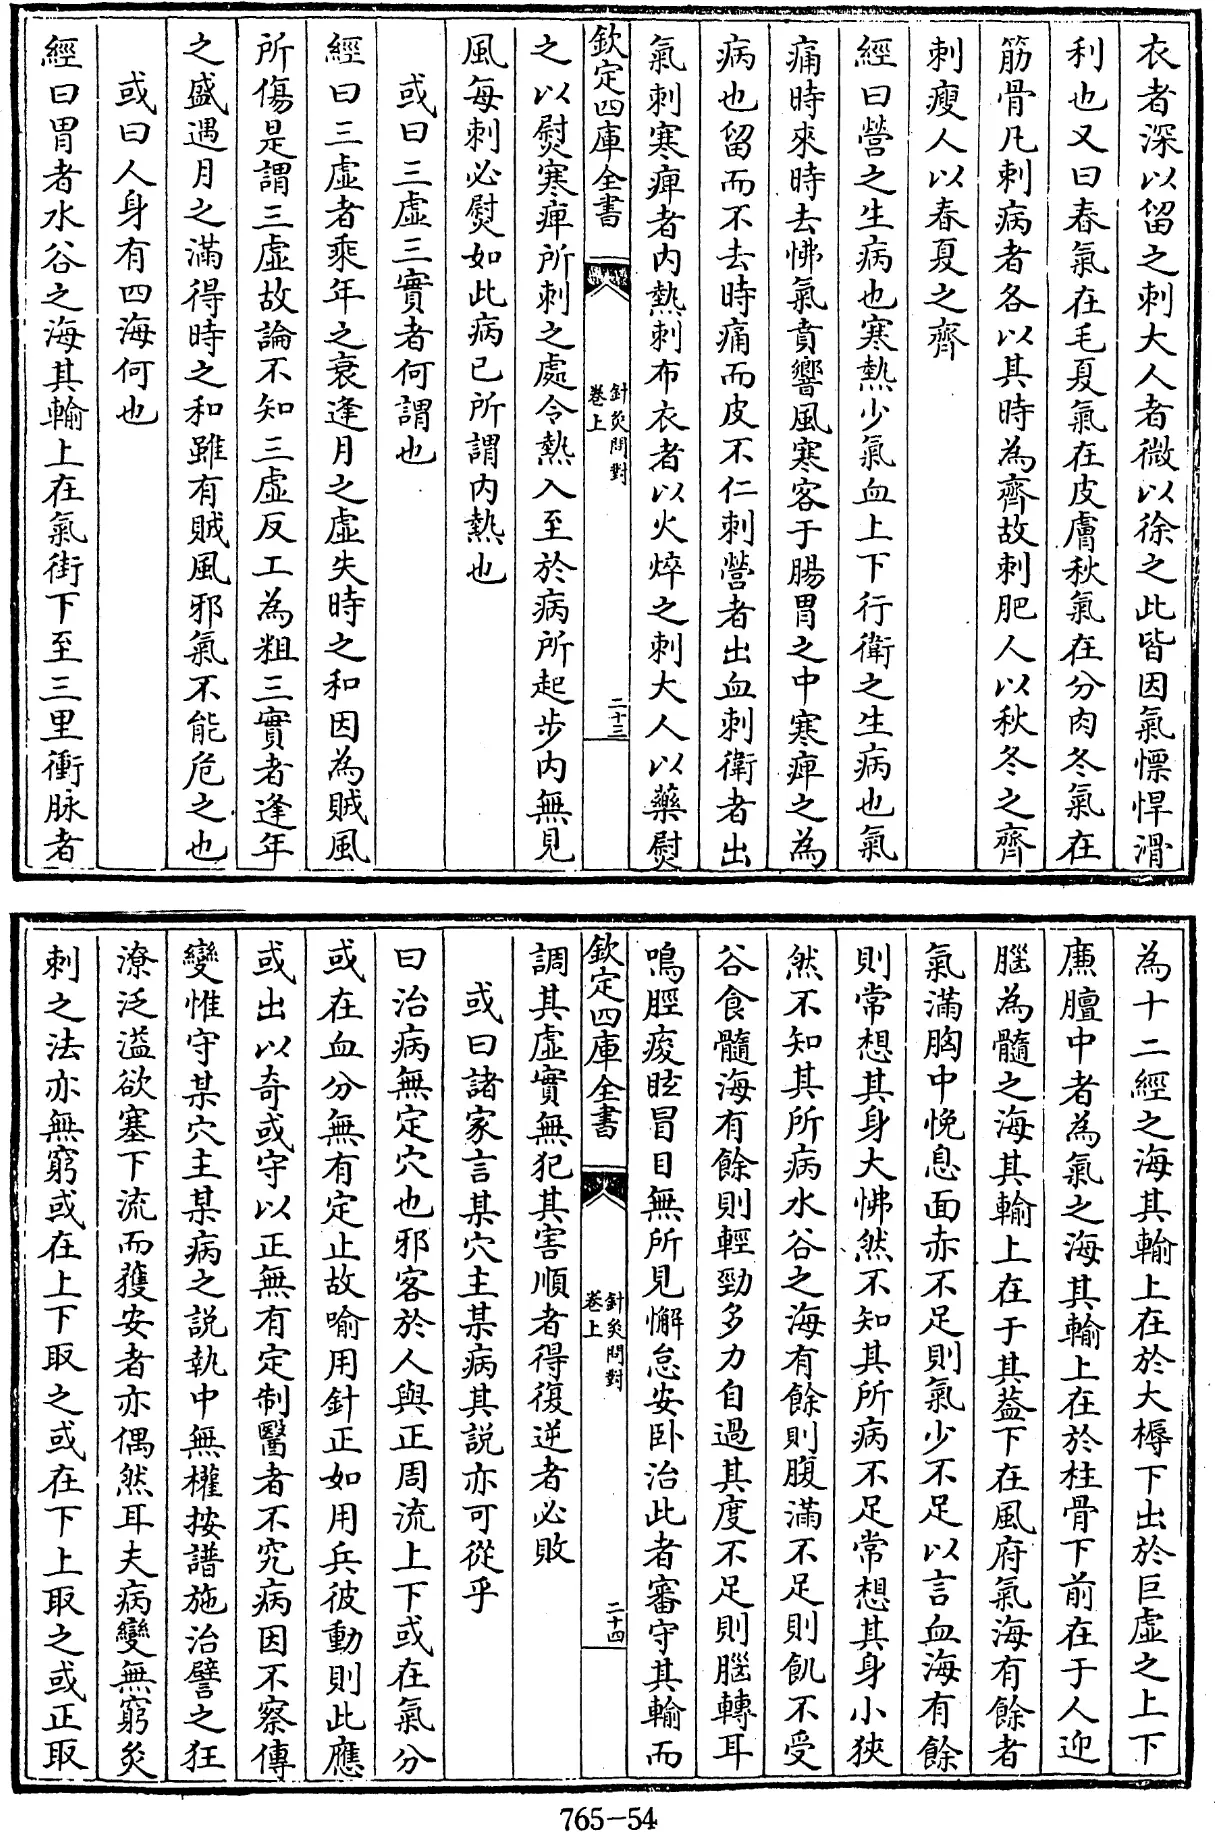 衣者深以留之刺大人者微以徐之此皆因氣慓悍滑
利也又曰春氣在毛夏氣在皮膚秋氣在分肉冬氣在
筋骨凡刺病者各以其時為齊故刺肥人以秋冬之齊
刺瘦人以春夏之齊
經曰營之生病也寒熱少氣血上下行衛之生病也氣
痛時來時去怫氣賁響風寒客于腸胃之中寒痺之為
病也留而不去時痛而皮不仁刺營者出血刺衛者出
氣刺寒痺者内熱刺布衣者以火焠之刺大人以藥熨
欽定四庫全書
針灸問對
卷上
二十三
之以熨寒痺所刺之處令熱入至於病所起步内無見
風每刺必熨如此病已所謂内熱也
或曰三虛三實者何謂也
經曰三虛者乘年之衰逢月之虛失時之和因為賊風
所傷是謂三虛故論不知三虛反工為粗三實者逢年
之盛遇月之滿得時之和雖有賊風邪氣不能危之也
或曰人身有四海何也
經曰胃者水谷之海其輸上在氣街下至三里衝脉者
為十二經之海其輸上在於大槈下出於巨虛之上下
廉膻中者為氣之海其輸上在於柱骨下前在于人迎
腦為髓之海其輸上在于其葢下在風府氣海有餘者
氣滿胸中悗息面赤不足則氣少不足以言血海有餘
則常想其身大怫然不知其所病不足常想其身小狹
然不知其所病水谷之海有餘則腹滿不足則飢不受
谷食髓海有餘則輕勁多力自過其度不足則腦轉耳
鳴脛痠眩冒目無所見懈怠安卧治此者審守其輸而
欽定四庫全書
針灸問對
卷上
二十四
調其虛實無犯其害順者得復逆者必敗
或曰諸家言某穴主某病其説亦可從乎
曰治病無定穴也邪客於人與正周流上下或在氣分
或在血分無有定止故喻用針正如用兵彼動則此應
或出以奇或守以正無有定制醫者不究病因不察傳
變惟守某穴主某病之説執中無權按譜施治譬之狂
潦泛溢欲塞下流而獲安者亦偶然耳夫病變無窮灸
刺之法亦無窮或在上下取之或在下上取之或正取
765-54